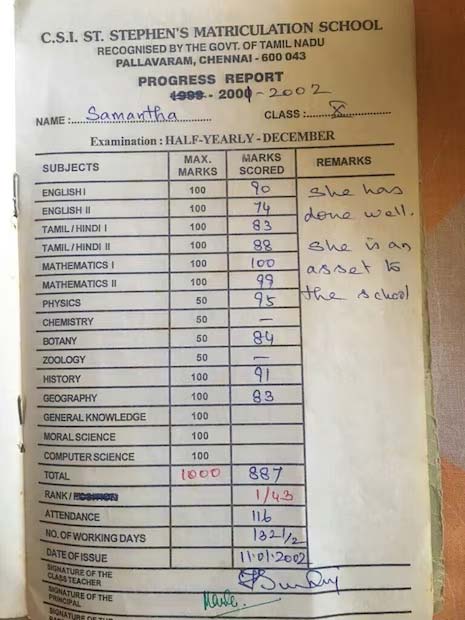 C.S.I. ST. STEPHEN'S MATRICULATION SCHOOL
RECOGNISED BY THE GOVT. OF TAMIL NADU
PALLAVARAM, CHENNAI - 600 043
PROGRESS REPORT
1999 - 2001 - 2002
NAME : Samantha CLASS : X
Examination : HALF-YEARLY - DECEMBER
SUBJECTS MAX. MARKS MARKS SCORED REMARKS
ENGLISH I 100 90 She has
ENGLISH II 100 74 done well.
TAMIL / HINDI I 100 83
TAMIL / HINDI II 100 88 She is an
MATHEMATICS I 100 100 asset to
MATHEMATICS II 100 99 the school
PHYSICS 50 95
CHEMISTRY 50 —
BOTANY 50 84
ZOOLOGY 50 —
HISTORY 100 91
GEOGRAPHY 100 83
GENERAL KNOWLEDGE 100
MORAL SCIENCE 100
COMPUTER SCIENCE 100
TOTAL 1000 887
RANK / 1/43
ATTENDANCE 116
NO. OF WORKING DAYS 132 1/2
DATE OF ISSUE 11.01.2002
SIGNATURE OF THE CLASS TEACHER
SIGNATURE OF THE PRINCIPAL
SIGNATURE OF THE